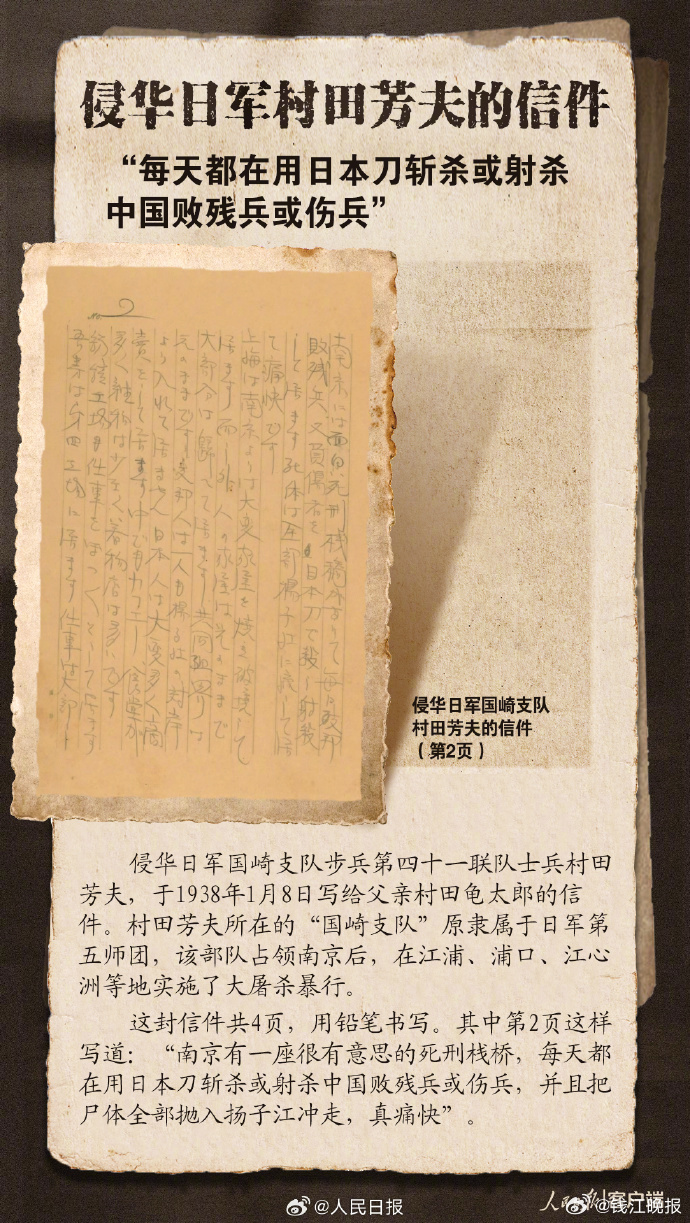 侵华日军村田芳夫的信件
“每天都在用日本刀斩杀或射杀
中国败残兵或伤兵”
南京には面白死刑桟橋があって毎日支那
敗残兵又負傷者を日本刀で殺し射殺
して居ます死体は全部楊子江に流して居
て痛快です
上海は南京よりは大変家屋を焼き破壊して
居ます而し外人の家屋は其のままで
大部分は居ます共同租界
元のままです支那人は一人も
より入れて居ません日本人は大変多く商
賣をして居ます中でもカフェー食堂が
多く物は少なく着物店は多いです
工場も仕事をぼつくそうして居ます
工場に居ます仕事は
侵华日军国崎支队
村田芳夫的信件
（第2页）
侵华日军国崎支队步兵第四十一联队士兵村田
芳夫，于1938年1月8日写给父亲村田龟太郎的信
件。村田芳夫所在的“国崎支队”原隶属于日军第
五师团，该部队占领南京后，在江浦、浦口、江心
洲等地实施了大屠杀暴行。
这封信件共4页，用铅笔书写。其中第2页这样
写道：“南京有一座很有意思的死刑栈桥，每天都
在用日本刀斩杀或射杀中国败残兵或伤兵，并且把
尸体全部抛入扬子江冲走，真痛快”。
@人民日报
客户端
@钱江晚报